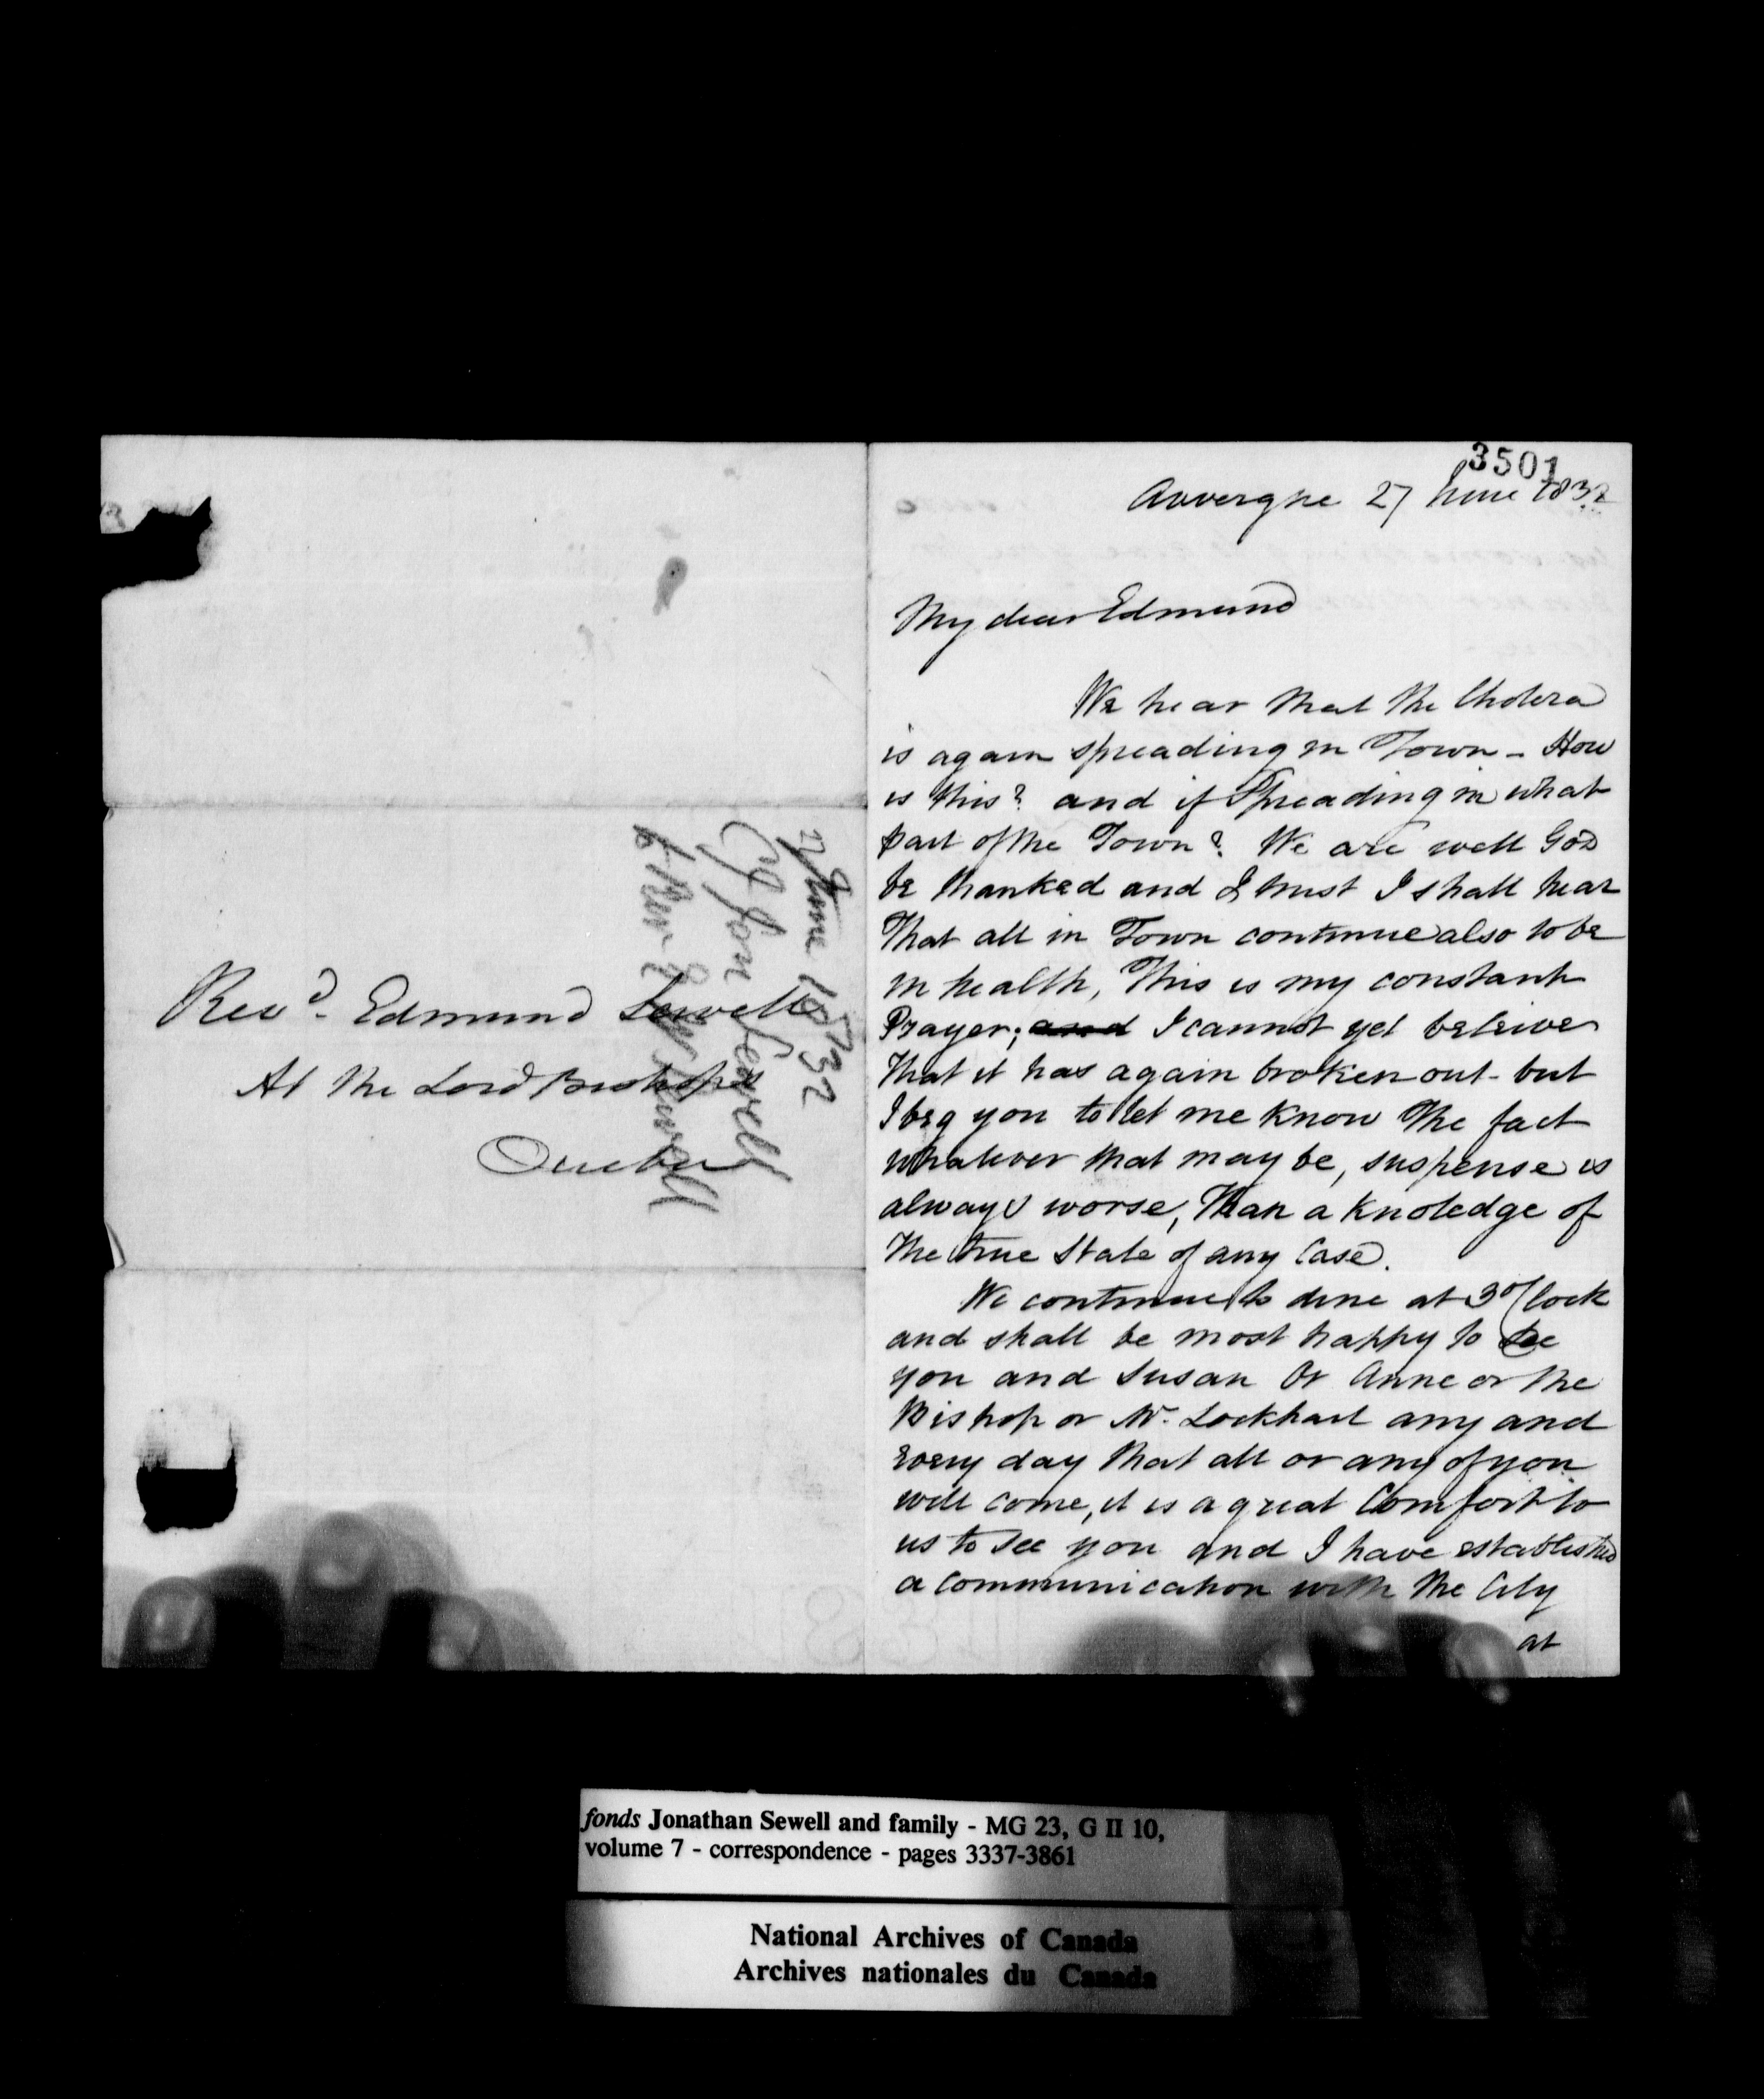 Revd. Edmund Sewell
At the Lord Bishops
Quebec
27 June 1832
Jon Sewell
to Revd E W Sewell
3501
Auvergne 27 June 1832
My dear Edmund
We hear that the Cholera
is again spreading in Town - How
is this? and if Spreading in what
part of the Town? We are well God
be thanked and I trust I shall hear
That all in Town continue also to be
in health, This is my constant
Prayer; and I cannot yet beleive
That it has again broken out - but
I beg you to let me know the fact
whatever that may be, suspense is
always worse, Than a knoledge of
the true State of any Case.
We continue to dine at 3 o'Clock
and shall be most happy to see
you and Susan Or Anne or the
Bishop or Mr. Lockhart any and
every day that all or any of you
will come, it is a great Comfort to
us to see you and I have established
a Communication with the City
at
fonds Jonathan Sewell and family - MG 23, G II 10,
volume 7 - correspondence - pages 3337-3861
National Archives of Canada
Archives nationales du Canada